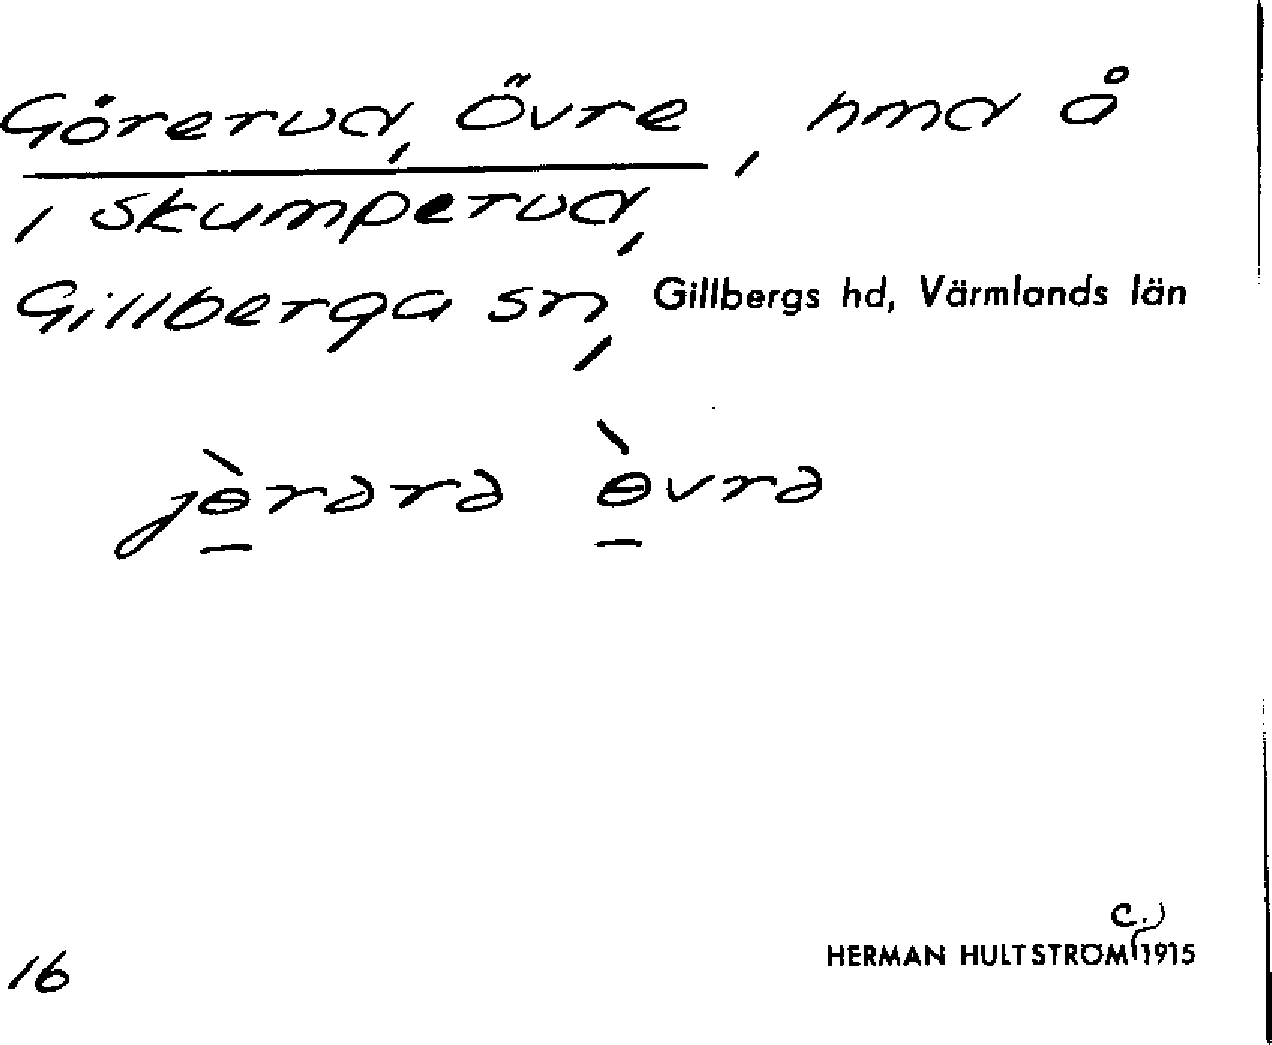 Görerud, Övre, hmd å
i Skumperud,
Gillberga sn, Gillbergs hd, Värmlands län
jɵ̀rərə ɵ̀vrə
c.
HERMAN HULTSTRÖM 1915
16